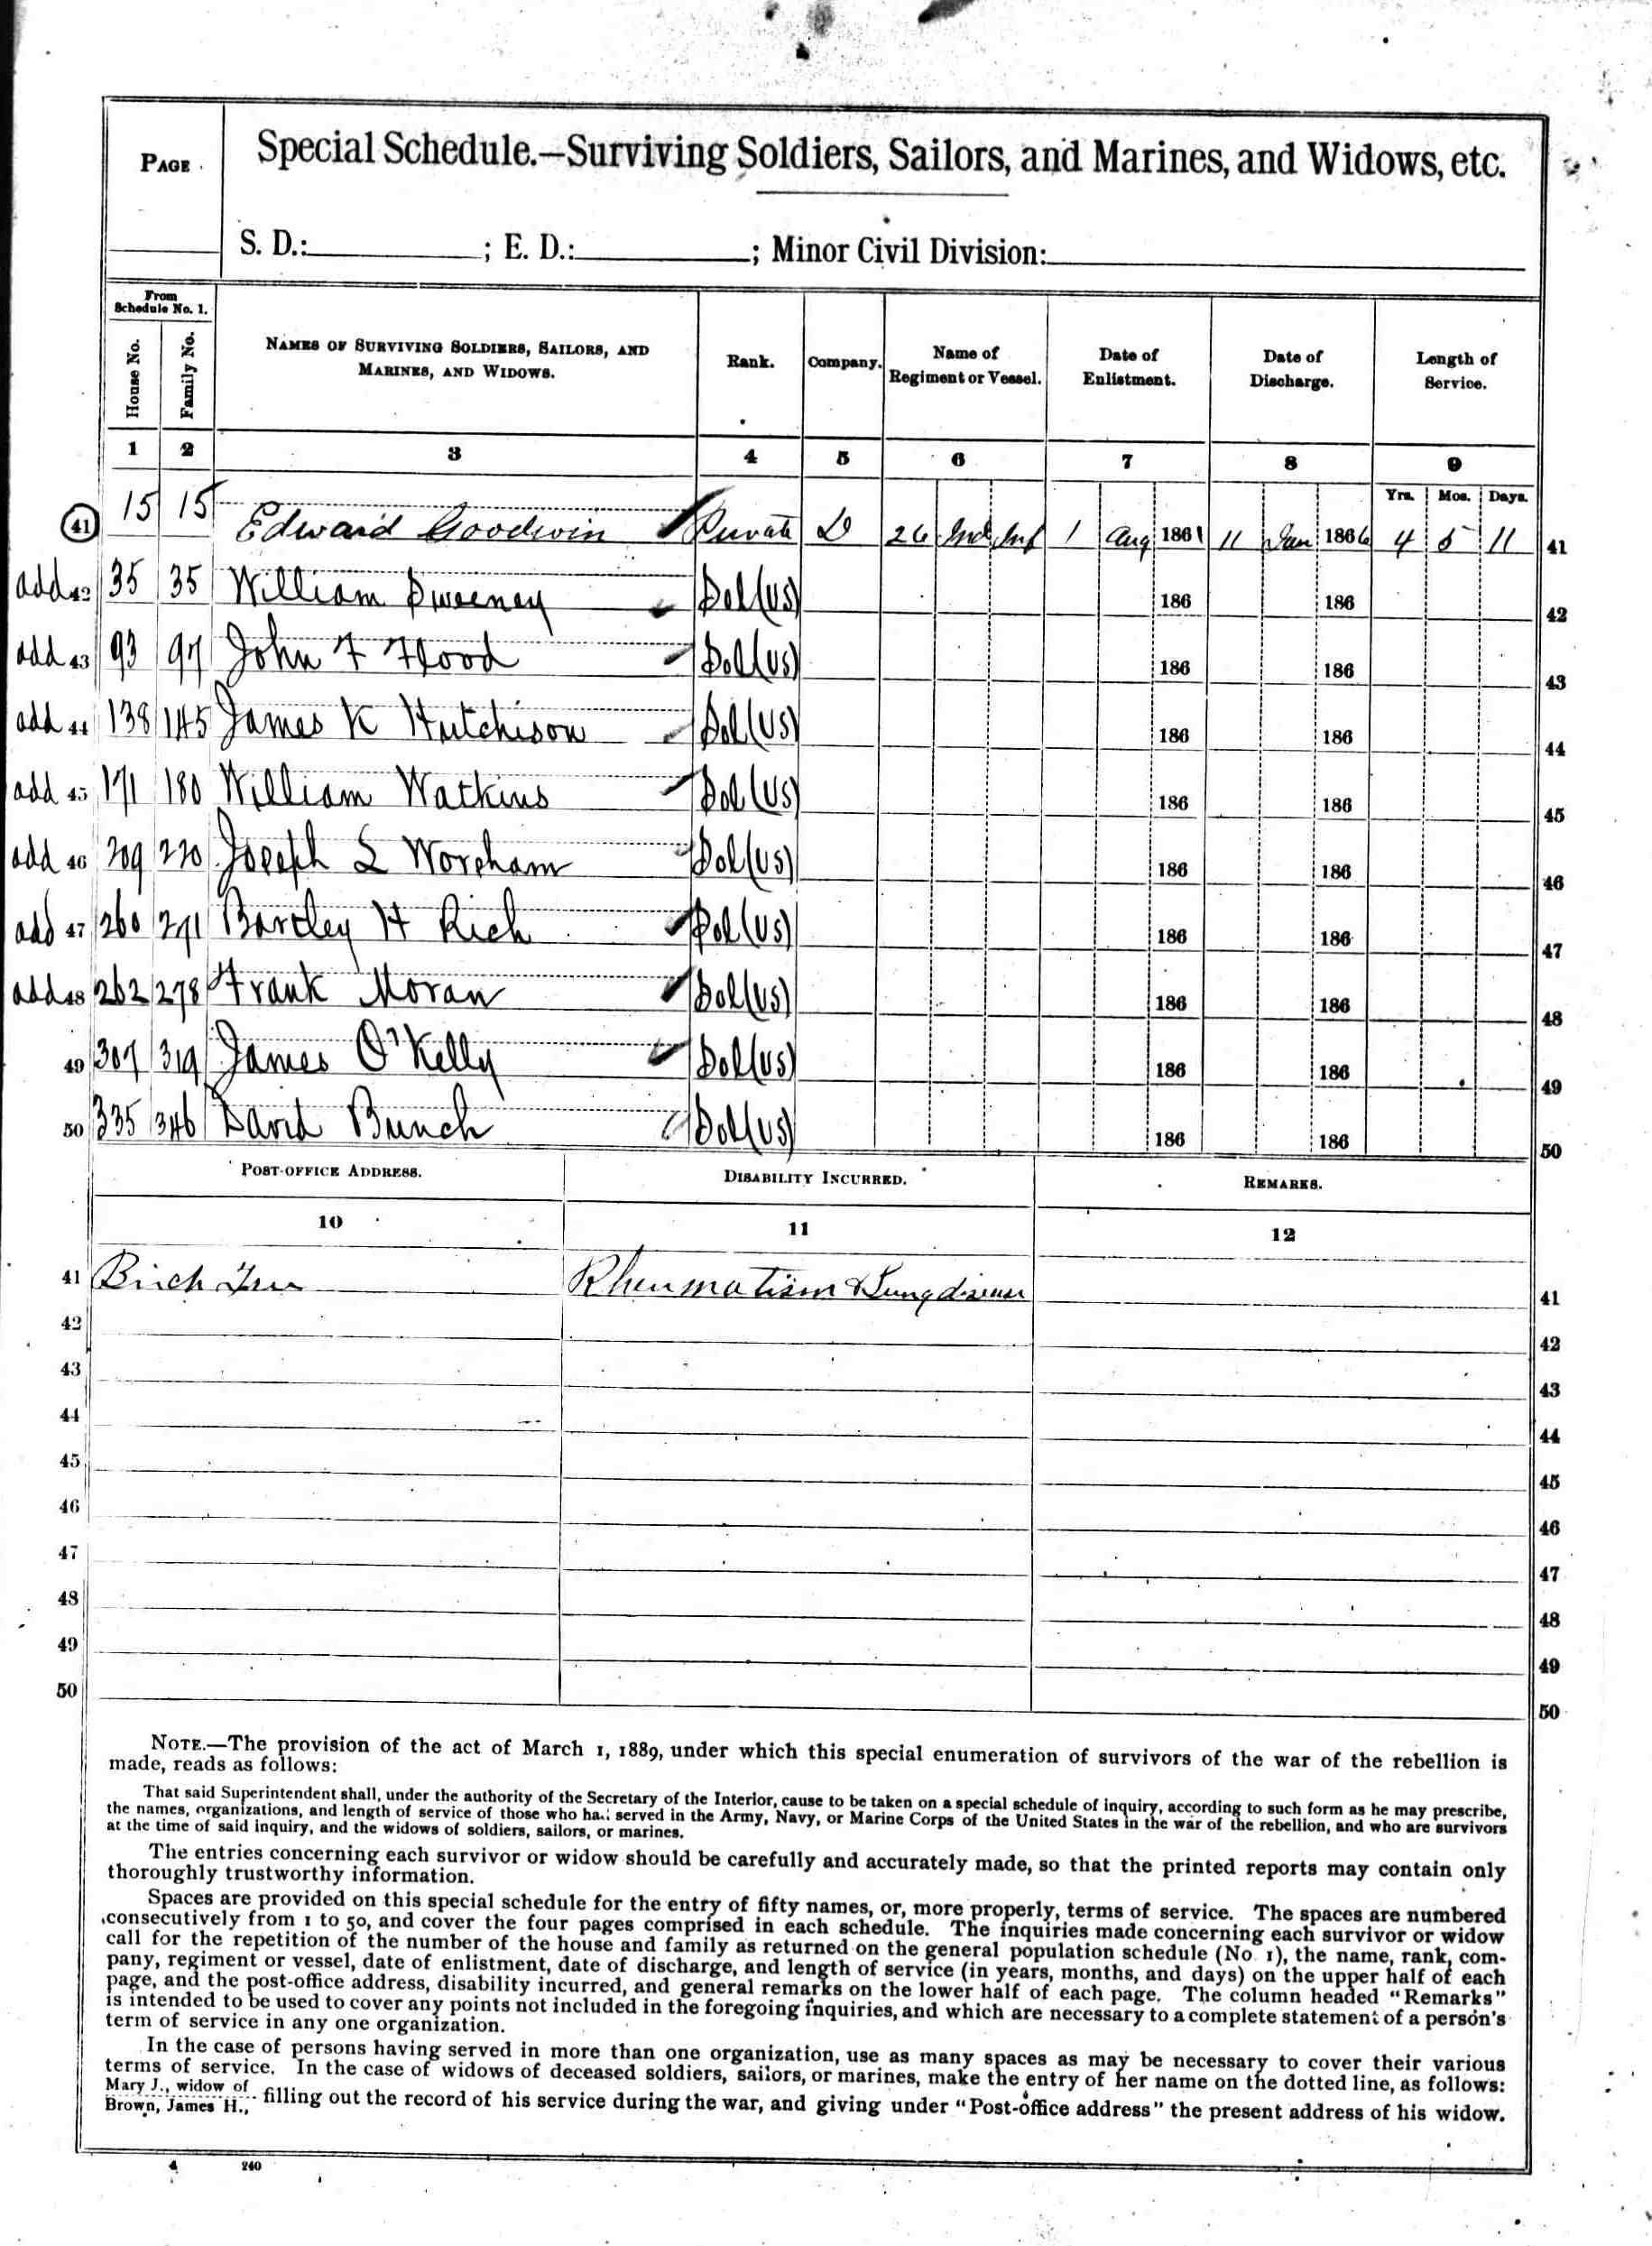 PAGE
Special Schedule.—Surviving Soldiers, Sailors, and Marines, and Widows, etc.
S. D.: ; E. D.: ; Minor Civil Division:
From Schedule No. 1.
House No.
Family No.
NAMES OF SURVIVING SOLDIERS, SAILORS, AND MARINES, AND WIDOWS.
Rank.
Company.
Name of Regiment or Vessel.
Date of Enlistment.
Date of Discharge.
Length of Service.
1 2 3 4 5 6 7 8 9
Yrs. Mos. Days.
41 15 15 Edward Goodwin Private D 26 Ind Inf 1 Aug 1861 11 Jan 1866 4 5 11 41
add 42 35 35 William Sweeney Sol (US) 186 186 42
add 43 93 97 John F Flood Sol (US) 186 186 43
add 44 138 145 James K Hutchison Sol (US) 186 186 44
add 45 171 180 William Watkins Sol (US) 186 186 45
add 46 209 220 Joseph L Worsham Sol (US) 186 186 46
add 47 260 271 Bartley H Rich Sol (US) 186 186 47
add 48 262 278 Frank Moran Sol (US) 186 186 48
49 307 319 James O'Kelly Sol (US) 186 186 49
50 335 346 David Bunch Sol (US) 186 186 50
POST-OFFICE ADDRESS. DISABILITY INCURRED. REMARKS.
10 11 12
41 Birch Tree Rheumatism & Lung disease 41
42 42
43 43
44 44
45 45
46 46
47 47
48 48
49 49
50 50
NOTE.—The provision of the act of March 1, 1889, under which this special enumeration of survivors of the war of the rebellion is
made, reads as follows:
That said Superintendent shall, under the authority of the Secretary of the Interior, cause to be taken on a special schedule of inquiry, according to such form as he may prescribe,
the names, organizations, and length of service of those who had served in the Army, Navy, or Marine Corps of the United States in the war of the rebellion, and who are survivors
at the time of said inquiry, and the widows of soldiers, sailors, or marines.
The entries concerning each survivor or widow should be carefully and accurately made, so that the printed reports may contain only
thoroughly trustworthy information.
Spaces are provided on this special schedule for the entry of fifty names, or, more properly, terms of service. The spaces are numbered
consecutively from 1 to 50, and cover the four pages comprised in each schedule. The inquiries made concerning each survivor or widow
call for the repetition of the number of the house and family as returned on the general population schedule (No. 1), the name, rank, com-
pany, regiment or vessel, date of enlistment, date of discharge, and length of service (in years, months, and days) on the upper half of each
page, and the post-office address, disability incurred, and general remarks on the lower half of each page. The column headed "Remarks"
is intended to be used to cover any points not included in the foregoing inquiries, and which are necessary to a complete statement of a person's
term of service in any one organization.
In the case of persons having served in more than one organization, use as many spaces as may be necessary to cover their various
terms of service. In the case of widows of deceased soldiers, sailors, or marines, make the entry of her name on the dotted line, as follows:
Mary J., widow of
Brown, James H., filling out the record of his service during the war, and giving under "Post-office address" the present address of his widow.
4 240